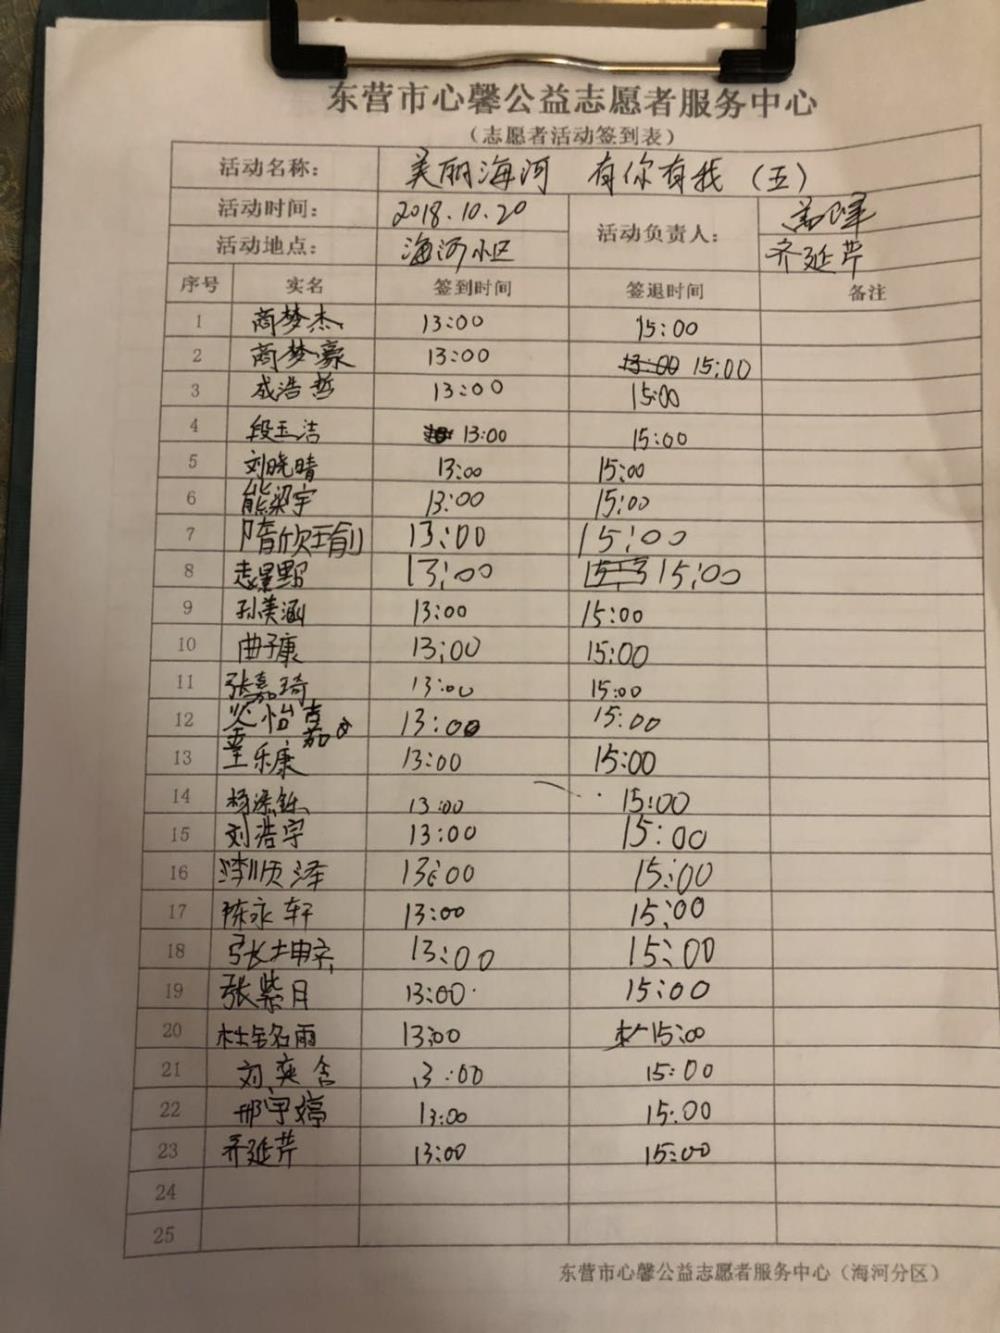 东营市心馨公益志愿者服务中心
（志愿者活动签到表）
活动名称： 美丽海河 有你有我（五）
活动时间： 2018.10.20 活动负责人：
活动地点： 海河小区 齐延芹
序号 实名 签到时间 签退时间 备注
1 商梦杰 13:00 15:00
2 商梦豪 13:00 15:00
3 成浩哲 13:00 15:00
4 段玉洁 13:00 15:00
5 刘晓晴 13:00 15:00
6 熊梁宇 13:00 15:00
7 隋欣瑜 13:00 15:00
8 13:00 15:00
9 孙美涵 13:00 15:00
10 曲子康 13:00 15:00
11 张嘉琦 13:00 15:00
12 13:00 15:00
13 王乐康 13:00 15:00
14 13:00 15:00
15 刘浩宇 13:00 15:00
16 李顺泽 13:00 15:00
17 陈永轩 13:00 15:00
18 13:00 15:00
19 张紫月 13:00 15:00
20 杜铭雨 13:00 15:00
21 刘奕含 13:00 15:00
22 邢宇婷 13:00 15:00
23 齐延芹 13:00 15:00
24
25
东营市心馨公益志愿者服务中心（海河分区）